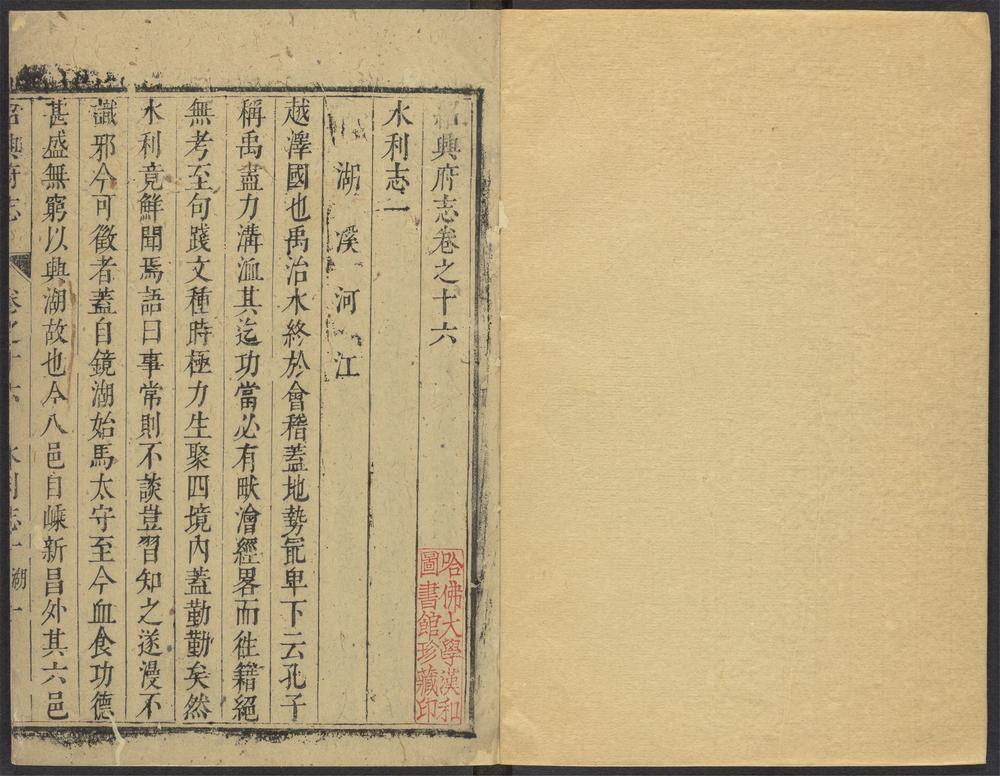 紹興府志卷之十六
水利志一
湖 溪 河 江
越澤國也禹治水終於會稽蓋地勢㝡卑下云孔子
稱禹盡力溝洫其迄功當必有畎澮經畧而徃籍絕
無考至句踐文種時極力生聚四境內蓋勤勤矣然
水利竟鮮聞焉語曰事常則不談豈習知之遂漫不
識邪今可徵者蓋自鏡湖始馬太守至今血食功德
甚盛無窮以興湖故也今八邑自嵊新昌外其六邑
紹興府志 卷之十六 水利志一 湖 一
哈佛大學漢和
圖書館珍藏印